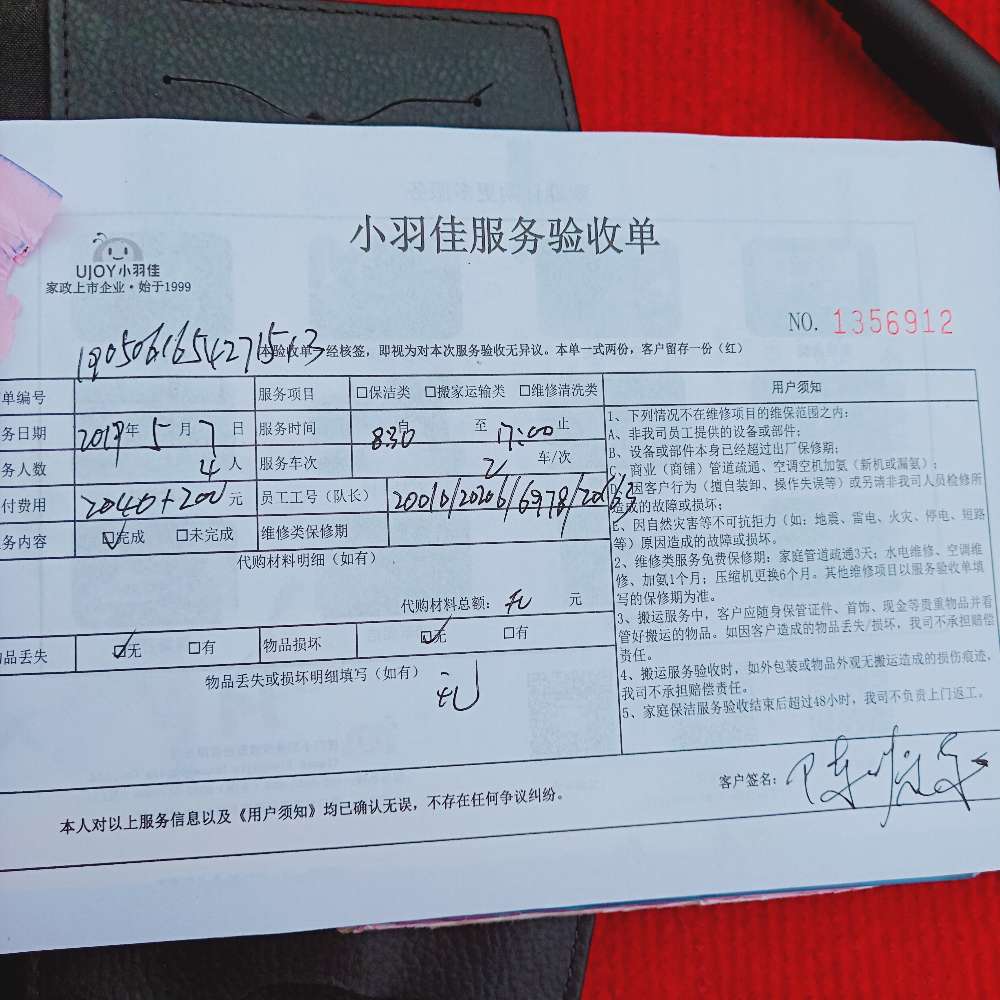 小羽佳服务验收单
UJOY小羽佳
家政上市企业·始于1999
NO. 1356912
本验收单一经核签，即视为对本次服务验收无异议。本单一式两份，客户留存一份（红）
单编号 服务项目 □保洁类 □搬家运输类 □维修清洗类
务日期 2019年5月7日 服务时间 8:30自 至 17:00止
务人数 4人 服务车次 2 车/次
付费用 2040+200元 员工工号（队长）
务内容 ☑完成 □未完成 维修类保修期
代购材料明细（如有）
代购材料总额：无 元
品丢失 ☑无 □有 物品损坏 ☑无 □有
物品丢失或损坏明细填写（如有）
无
用户须知
1、下列情况不在维修项目的维保范围之内：
A、非我司员工提供的设备或部件；
B、设备或部件本身已经超过出厂保修期；
C、商业（商铺）管道疏通、空调空机加氨（新机或漏氨）；
D、因客户行为（擅自装卸、操作失误等）或另请非我司人员检修所
造成的故障或损坏；
E、因自然灾害等不可抗拒力（如：地震、雷电、火灾、停电、短路
等）原因造成的故障或损坏。
2、维修类服务免费保修期：家庭管道疏通3天；水电维修、空调维
修、加氨1个月；压缩机更换6个月。其他维修项目以服务验收单填
写的保修期为准。
3、搬运服务中，客户应随身保管证件、首饰、现金等贵重物品并看
管好搬运的物品。如因客户造成的物品丢失/损坏，我司不承担赔偿
责任。
4、搬运服务验收时，如外包装或物品外观无搬运造成的损伤痕迹，
我司不承担赔偿责任。
5、家庭保洁服务验收结束后超过48小时，我司不负责上门返工。
客户签名：
本人对以上服务信息以及《用户须知》均已确认无误，不存在任何争议纠纷。